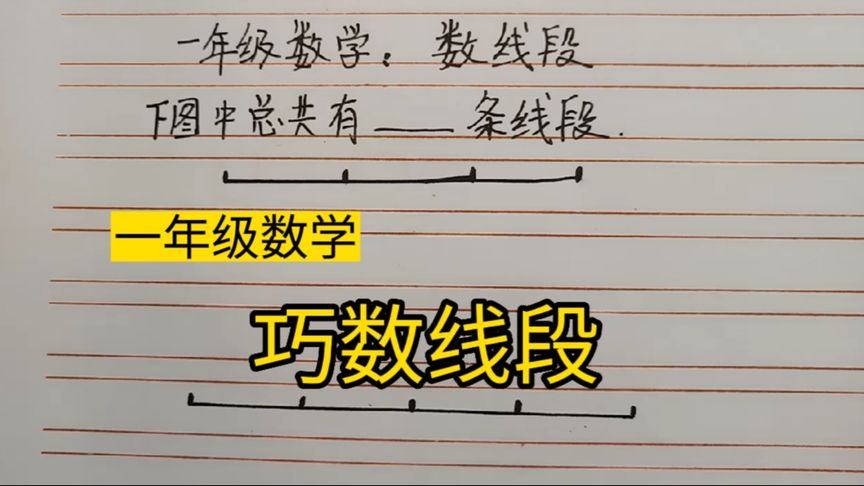 一年级数学：数线段
下图中总共有____条线段.
一年级数学
巧数线段